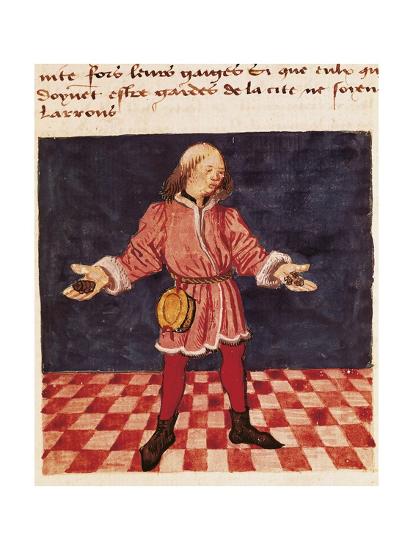 fors leurs gaiges Et que eulx qu
doyuent estre gardes de la cite ne soyen
Larrons